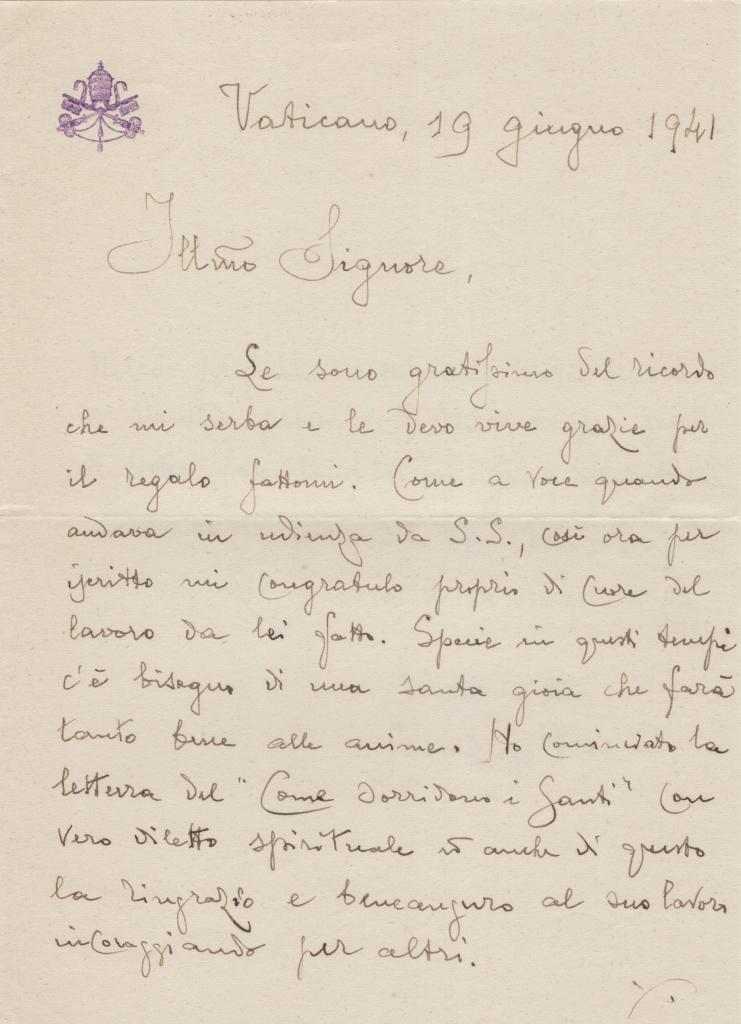 Vaticano, 19 giugno 1941
Illm̃o Signore,
Le sono gratissimo del ricordo
che mi serba e le devo vive grazie per
il regalo fattomi. Come a voce quando
andava in udienza da S.S., così ora per
iscritto mi congratulo proprio di cuore del
lavoro da lei fatto. Specie in questi tempi
c'è bisogno di una santa gioia che farà
tanto bene alle anime. Ho cominciato la
lettura del "Come sorridono i Santi" con
vero diletto spirituale ed anche di questo
la ringrazio e beneauguro al suo lavoro
incoraggiando per altri.